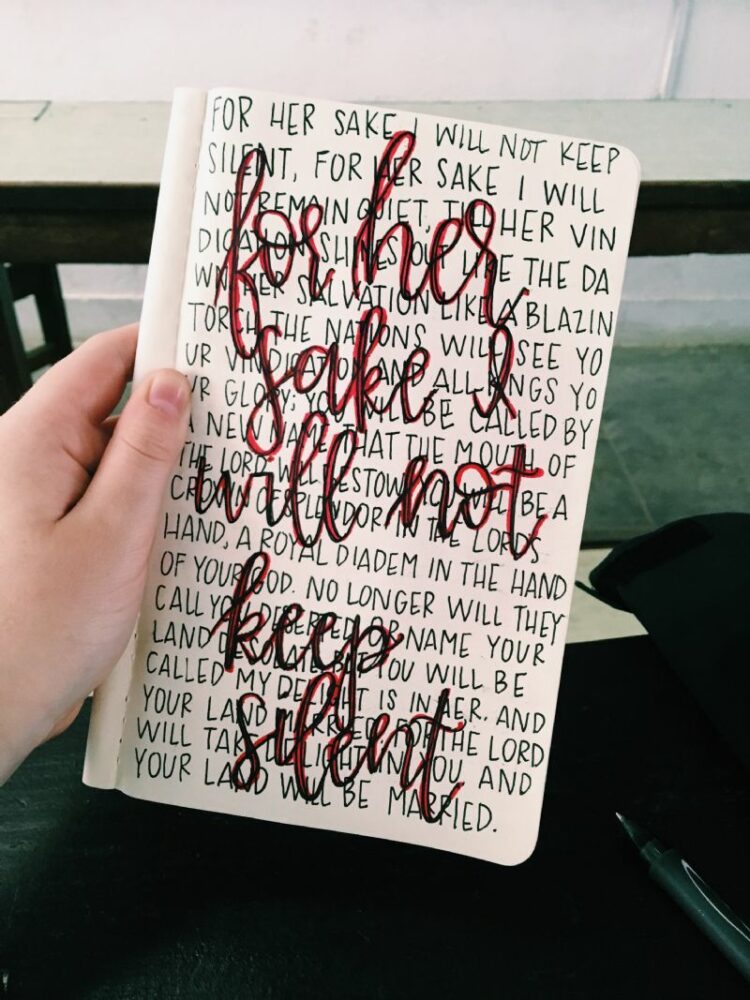 FOR HER SAKE I WILL NOT KEEP
SILENT, FOR HER SAKE I WILL
NOT REMAIN QUIET, TILL HER VIN
DICATION SHINES OUT LIKE THE DA
WN HER SALVATION LIKE A BLAZIN
TORCH THE NATIONS WILL SEE YO
UR VINDICATION AND ALL KINGS YO
UR GLORY; YOU WILL BE CALLED BY
A NEW NAME THAT THE MOUTH OF
THE LORD WILL BESTOW. YOU WILL BE A
CROWN OF SPLENDOR IN THE LORD'S
HAND, A ROYAL DIADEM IN THE HAND
OF YOUR GOD. NO LONGER WILL THEY
CALL YOU DESERTED OR NAME YOUR
LAND DESOLATE BUT YOU WILL BE
CALLED MY DELIGHT IS IN HER. AND
YOUR LAND MARRIED FOR THE LORD
WILL TAKE DELIGHT IN YOU AND
YOUR LAND WILL BE MARRIED.
for her
sake I
will not
keep
silent